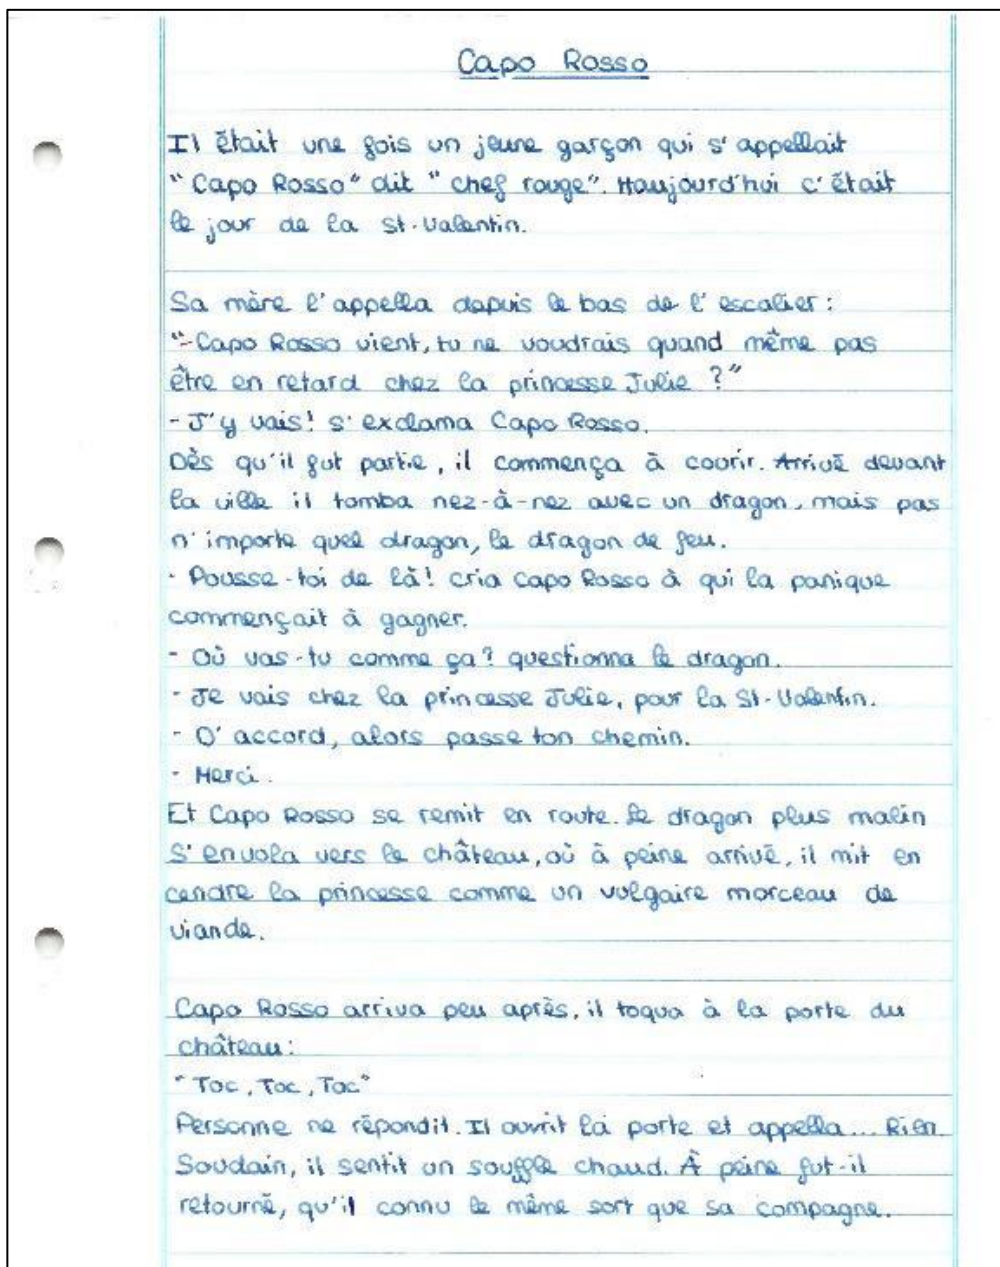 Capo Rosso
Il était une fois un jeune garçon qui s'appellait
"Capo Rosso" dit "chef rouge". Haujourd'hui c'était
le jour de la St-Valentin.
Sa mère l'appella depuis le bas de l'escalier :
"-Capo Rosso vient, tu ne voudrais quand même pas
être en retard chez la princesse Julie ?"
- J'y vais! s'exclama Capo Rosso.
Dès qu'il fut partie, il commença à courir. Arrivé devant
la ville il tomba nez-à-nez avec un dragon, mais pas
n'importe quel dragon, le dragon de feu.
- Pousse-toi de là! cria Capo Rosso à qui la panique
commençait à gagner.
- Où vas-tu comme ça? questionna le dragon.
- Je vais chez la princesse Julie, pour la St-Valentin.
- D'accord, alors passe ton chemin.
- Merci.
Et Capo Rosso se remit en route. Le dragon plus malin
s'envola vers le château, où à peine arrivé, il mit en
cendre la princesse comme un vulgaire morceau de
viande.
Capo Rosso arriva peu après, il toqua à la porte du
château:
"Toc, Toc, Toc"
Personne ne répondit. Il ouvrit la porte et appella... Rien
Soudain, il sentit un souffle chaud. À peine fut-il
retourné, qu'il connu le même sort que sa compagne.